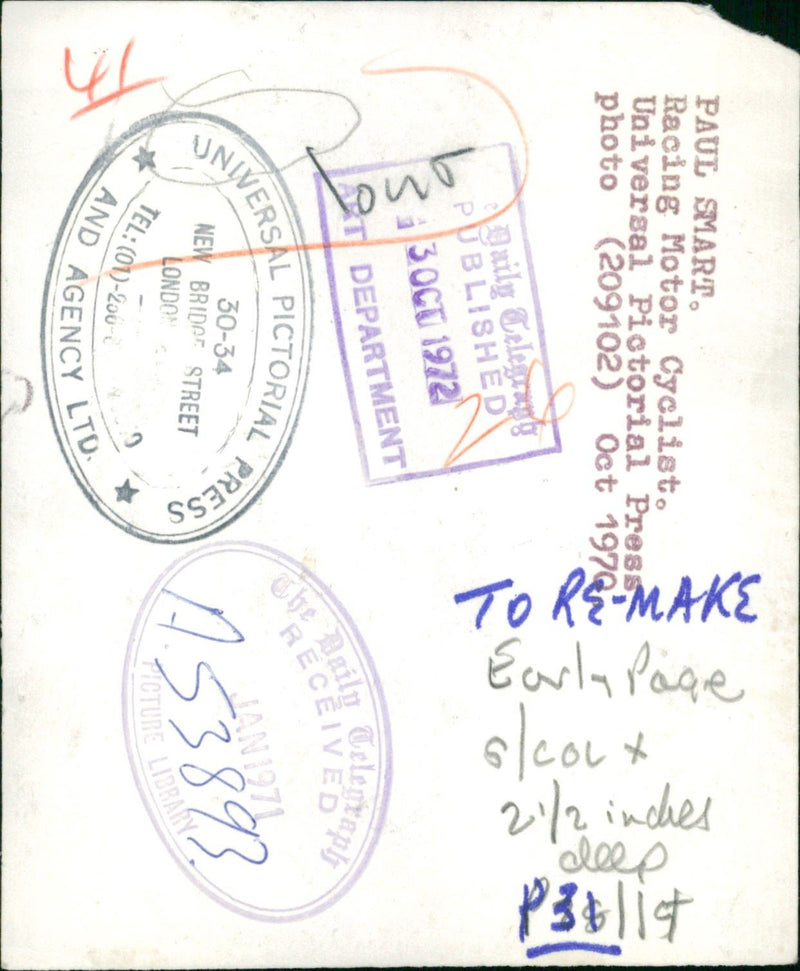 PAUL SMART.
Racing Motor Cyclist.
Universal Pictorial Press
photo (209102) Oct 1970.
UNIVERSAL PICTORIAL PRESS
AND AGENCY LTD.
30-34
NEW BRIDGE STREET
LONDON
TEL: (01)-
The Daily Telegraph
PUBLISHED
13 OCT 1972
ART DEPARTMENT
The Daily Telegraph
RECEIVED
JAN 1971
PICTURE LIBRARY
A 53893
TO RE-MAKE
Early Page
s/col x
2 1/2 inches
deep
P31